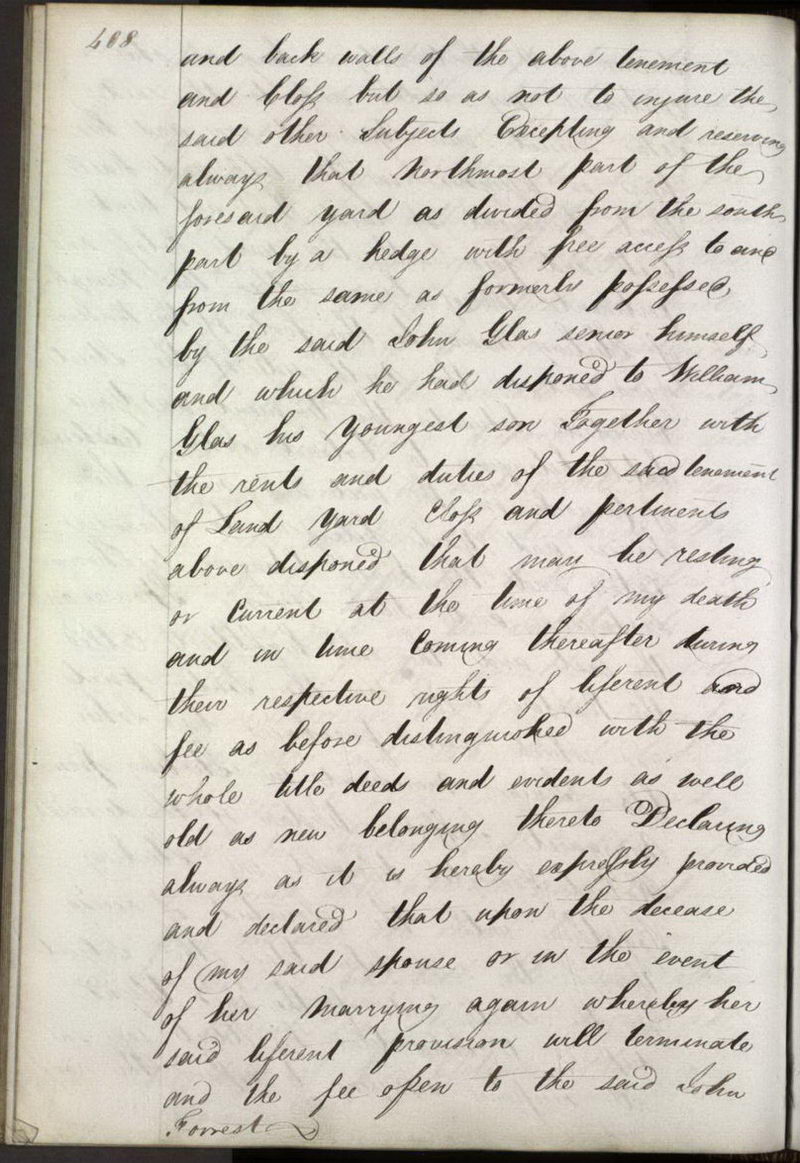 408
and back walls of the above tenement
and Closs but so as not to injure the
said other Subjects Excepting and reserving
always that Northmost part of the
foresaid yard as divided from the south
part by a hedge with free access to and
from the same as formerly possessed
by the said John Glas senior himself
and which he had disponed to William
Glas his Youngest son Together with
the rents and duties of the said tenement
of Land Yard Closs and pertinents
above disponed that may be resting
or Current at the time of my death
and in time Coming thereafter during
their respective rights of liferent and
fee as before distinguished with the
whole title deeds and evidents as well
old as new belonging thereto Declaring
always as it is hereby expressly provided
and declared that upon the decease
of my said spouse or in the event
of her Marrying again whereby her
said liferent provision will terminate
and the fee open to the said John
Forrest